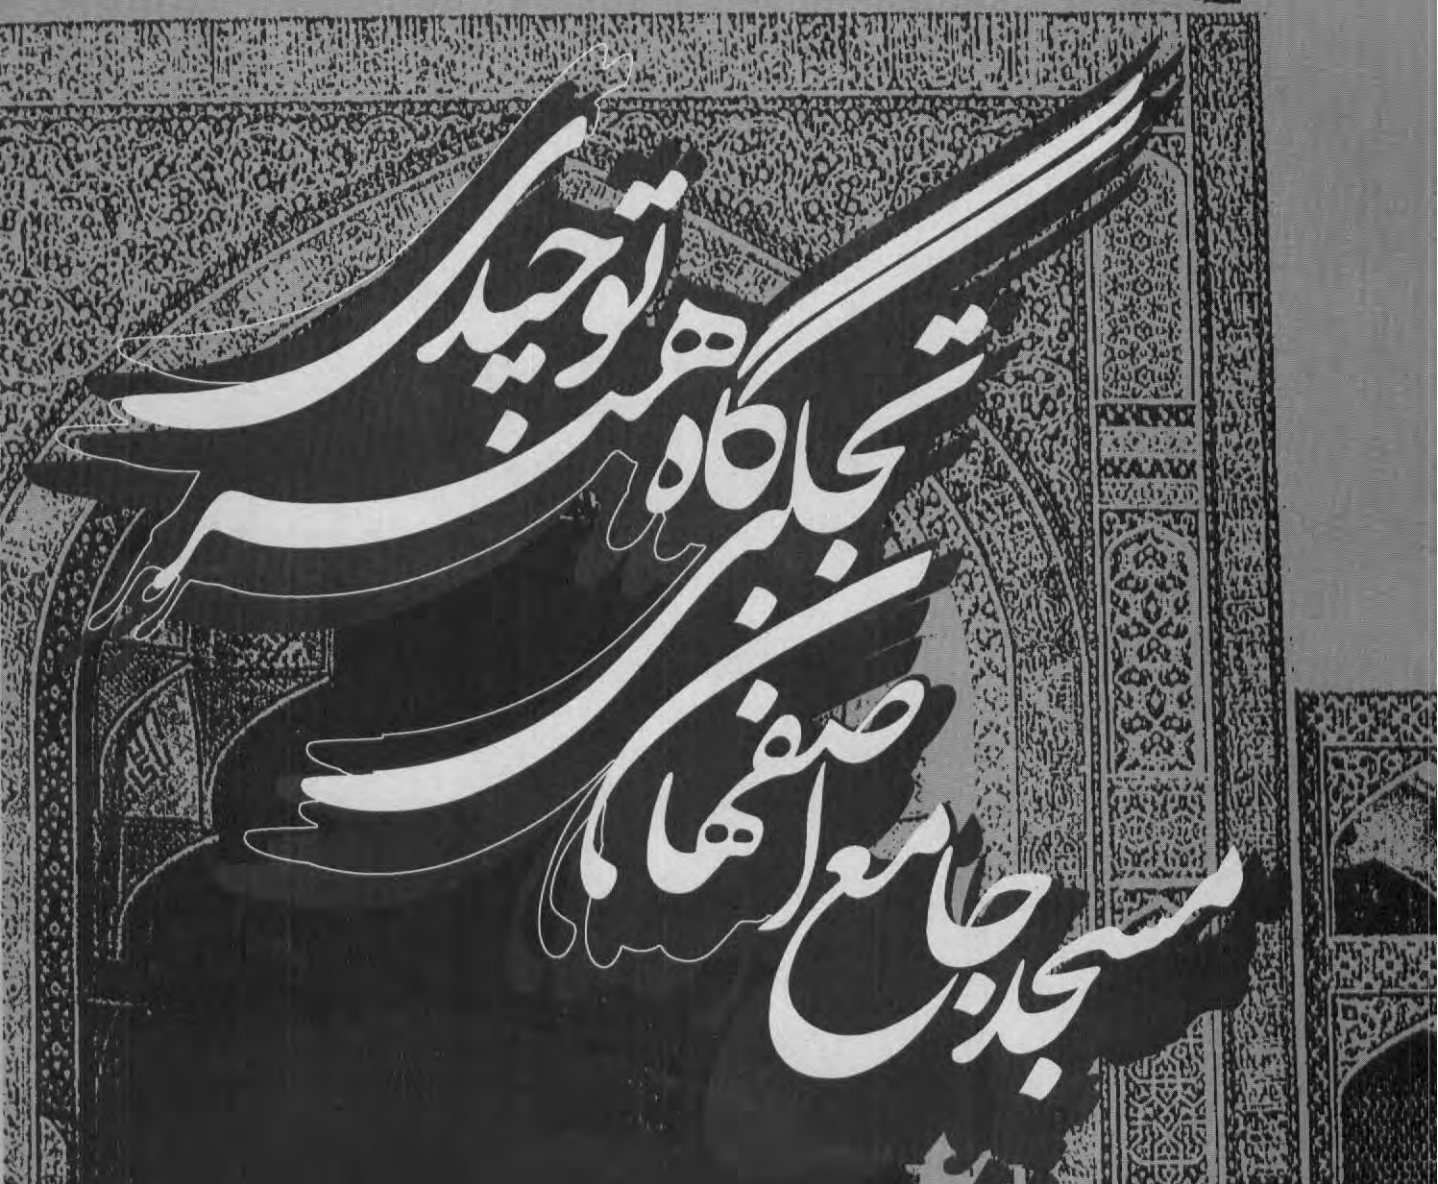 مسجد جامع اصفهان
تجلی گاه هنر توحیدی